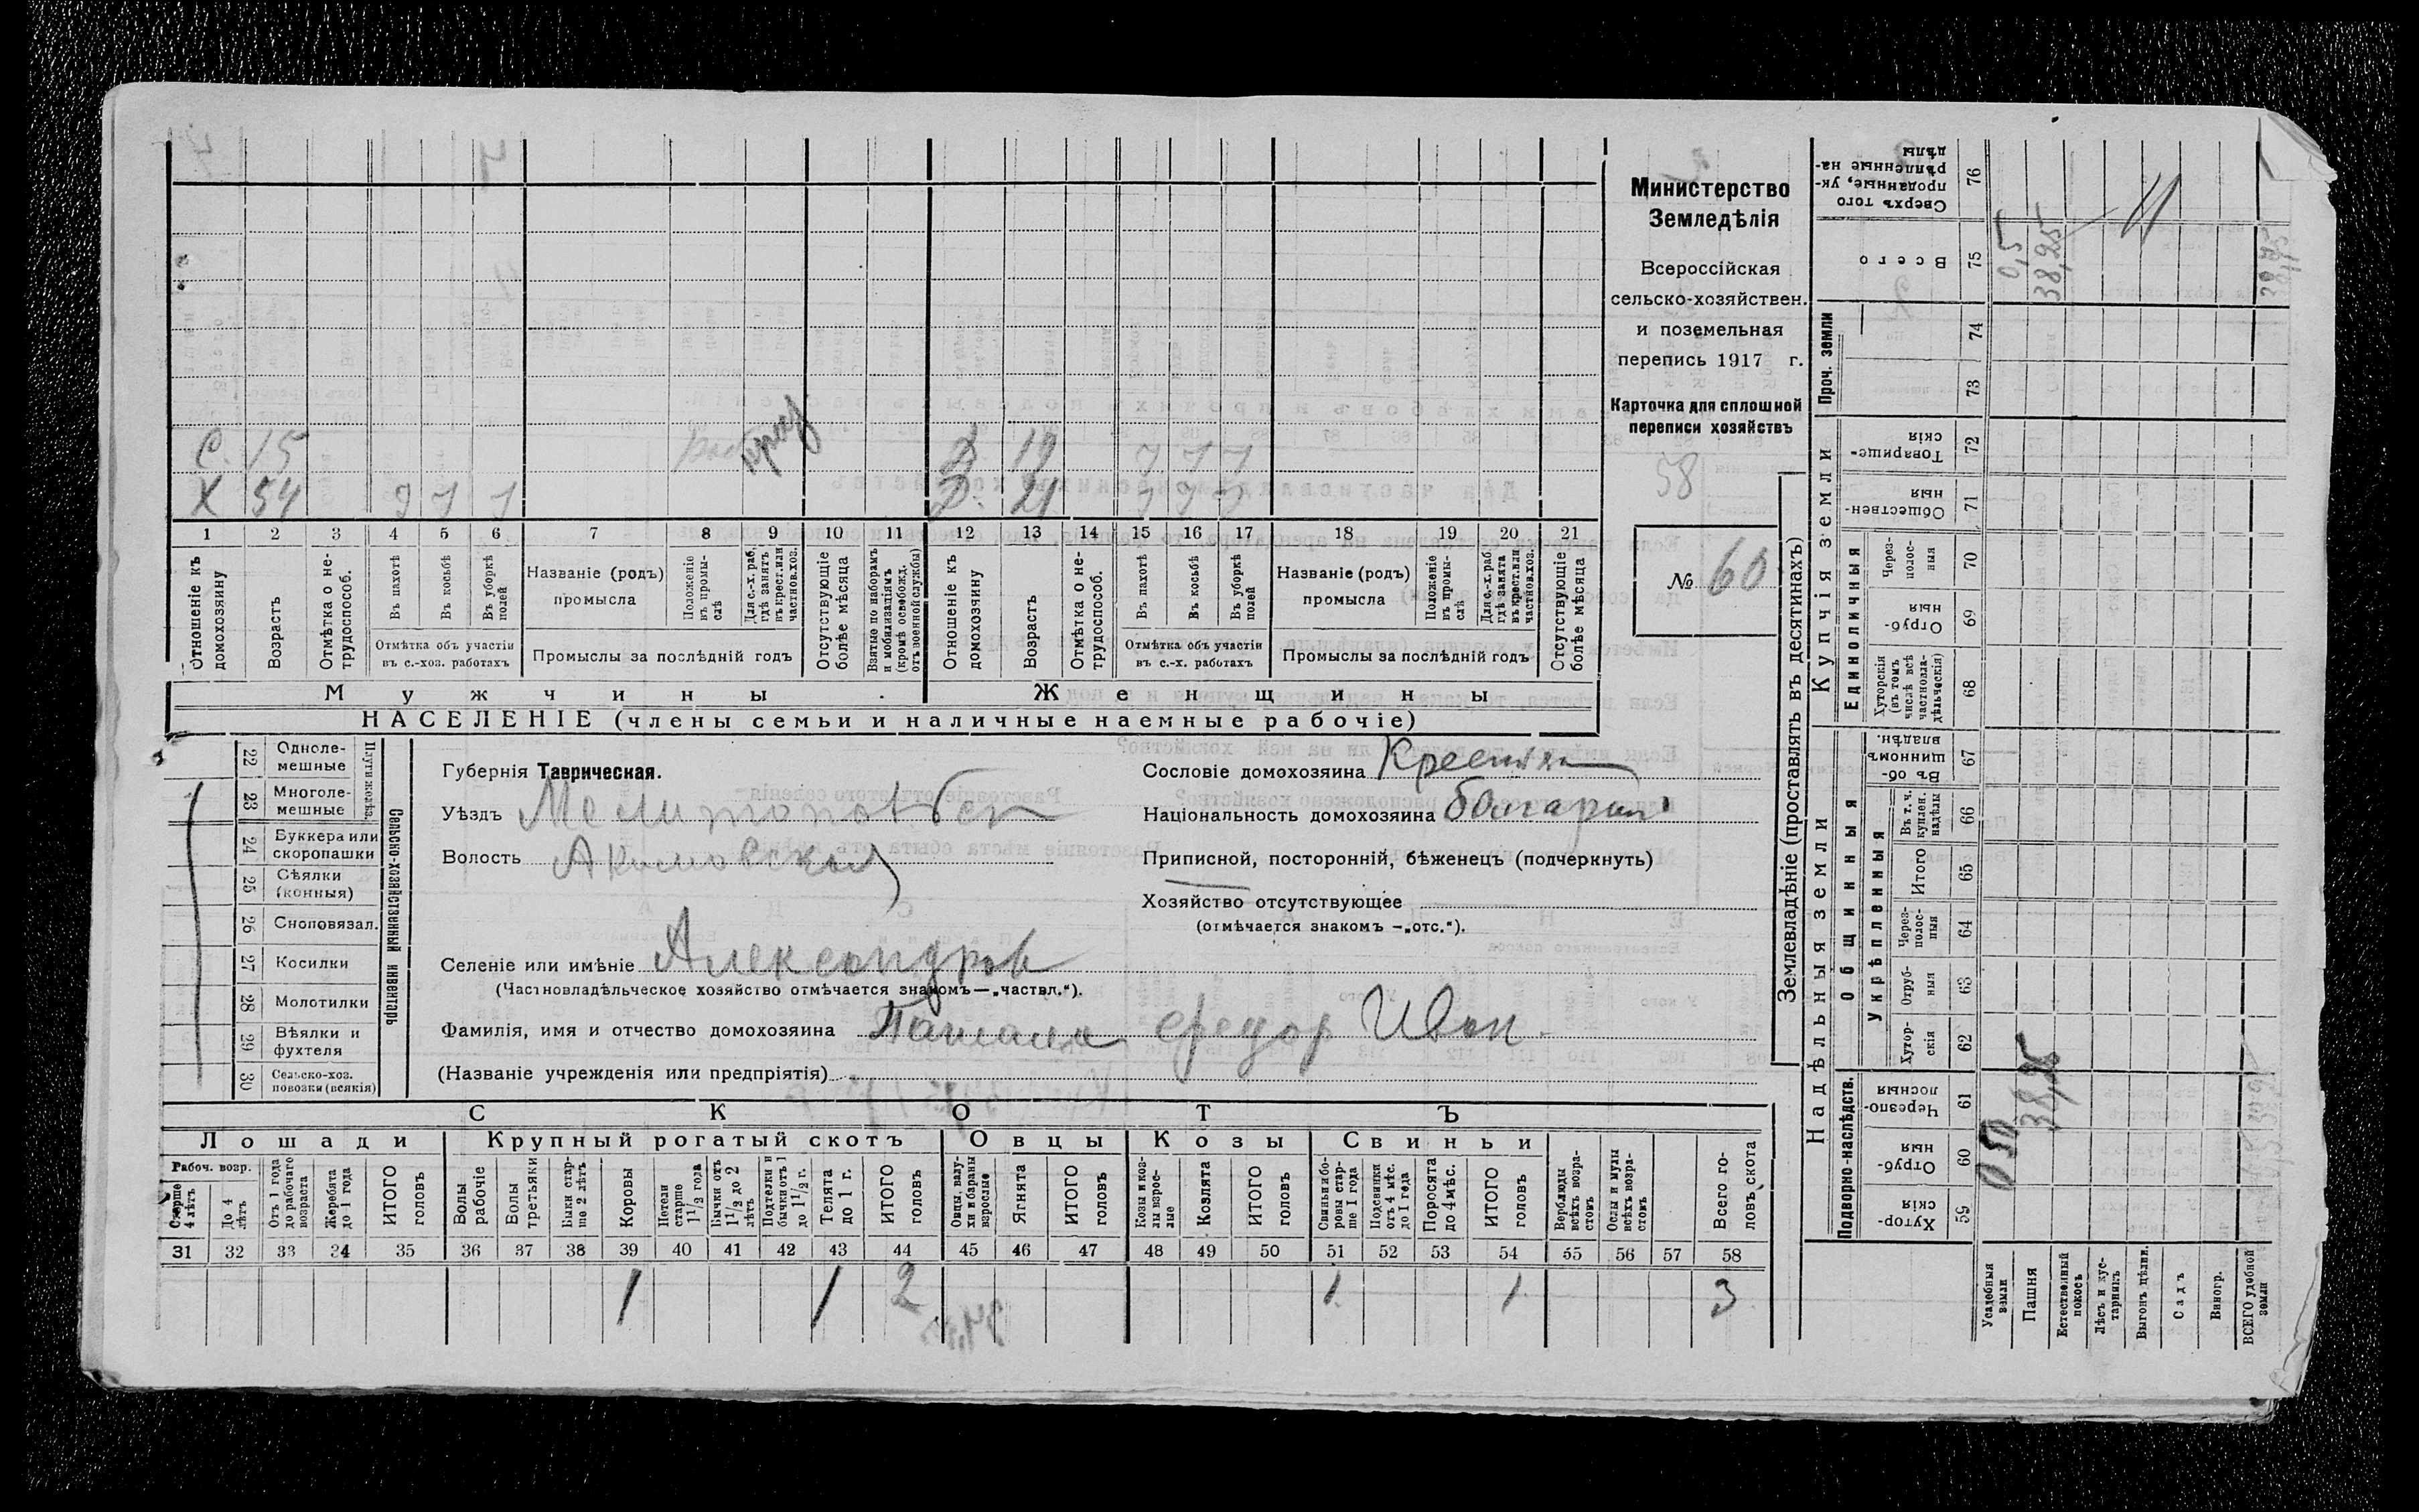 Министерство
Земледѣлія
Всероссійская
сельско-хозяйствен.
и поземельная
перепись 1917 г.
Карточка для сплошной
переписи хозяйствъ
58
№ 60
С. 15
Д. 19
Х 54
Д. 21
1 2 3 4 5 6 7 8 9 10 11 12 13 14 15 16 17 18 19 20 21
Отношеніе къ домохозяину
Возрастъ
Отмѣтка о не-трудоспособ.
Въ пахотѣ
Въ косьбѣ
Въ уборкѣ полей
Отмѣтка объ участіи въ с.-хоз. работахъ
Названіе (родъ) промысла
Положеніе въ промы-слѣ
Для с.-х. раб. гдѣ занятъ въ крест. или частнов. хоз.
Промыслы за послѣдній годъ
Отсутствующіе болѣе мѣсяца
Взятые по наборамъ и мобилизаціямъ (кромѣ освобожд. отъ военной службы)
Отношеніе къ домохозяину
Возрастъ
Отмѣтка о не-трудоспособ.
Въ пахотѣ
Въ косьбѣ
Въ уборкѣ полей
Отмѣтка объ участіи въ с.-х. работахъ
Названіе (родъ) промысла
Положеніе въ промы-слѣ
Для с.-х. раб. гдѣ занята въ крест. или частнов. хоз.
Промыслы за послѣдній годъ
Отсутствующіе болѣе мѣсяца
Мужчины. Женщины
НАСЕЛЕНІЕ (члены семьи и наличные наемные рабочіе)
Сельско-хозяйственный инвентарь
22 Одноле-мешные
23 Многоле-мешные
24 Буккера или скоропашки
25 Сѣялки (конныя)
26 Сноповязал.
27 Косилки
28 Молотилки
29 Вѣялки и фухтеля
30 Сельско-хоз. повозки (всякія)
Губернія Таврическая.
Уѣздъ
Волость
Селеніе или имѣніе Александров
(Частновладѣльческое хозяйство отмѣчается знакомъ—„частвл.“).
Фамилія, имя и отчество домохозяина Федор Иван.
(Названіе учрежденія или предпріятія)
Сословіе домохозяина
Національность домохозяина болгарин
Приписной, посторонній, бѣженецъ (подчеркнуть)
Хозяйство отсутствующее
(отмѣчается знакомъ —„отс.“).
СКОТЪ
Лошади Крупный рогатый скотъ Овцы Козы Свиньи
Рабоч. возр.
Старше 4 лѣтъ
До 4 лѣтъ
Отъ 1 года до рабочаго возраста
Жеребята до 1 года
ИТОГО головъ
Волы рабочіе
Волы третьяки
Быки стар-ше 2 лѣтъ
Коровы
Нетели старше 1 1/2 года
Бычки отъ 1 1/2 до 2 лѣтъ
Подтелки и бычки отъ 1 до 1 1/2 г.
Телята до 1 г.
ИТОГО головъ
Овцы, валу-хи и бараны взрослые
Ягнята
ИТОГО головъ
Козы и коз-лы взрос-лые
Козлята
ИТОГО головъ
Свиньи и бо-ровы стар-ше 1 года
Подсвинки отъ 4 мѣс. до 1 года
Поросята до 4 мѣс.
ИТОГО головъ
Верблюды всѣхъ возра-стовъ
Ослы и мулы всѣхъ возра-стовъ
Всего го-ловъ скота
31 32 33 34 35 36 37 38 39 40 41 42 43 44 45 46 47 48 49 50 51 52 53 54 55 56 57 58
1 1 2 1 1 3
Землевладѣніе (проставлять въ десятинахъ)
Надѣльныя земли Купчія земли Проч. земли
Подворно-наслѣдств. Общинныя Единоличныя
Укрѣпленныя
Хутор-скія 59
Отруб-ныя 60
Черезпо-лосныя 61
Хутор-скія 62
Отруб-ныя 63
Через-полос-ныя 64
Итого 65
Въ т. ч. куплен. надѣлы 66
Въ об-щинномъ владѣн. 67
Хуторскія (въ томъ числѣ всѣ частновла-дѣльческія) 68
Отруб-ныя 69
Через-полос-ныя 70
Обществен-ныя 71
Товарище-скія 72
73
74
Всего 75
Сверхъ того проданные, ук-рѣпленные на-дѣлы 76
Усадебныя земли 0,50 0,5
Пашня 38,25 38,25
Естественный покосъ
Лѣсъ и кус-тарникъ
Выгонъ цѣлин.
Садъ
Виногр.
ВСЕГО удобной земли